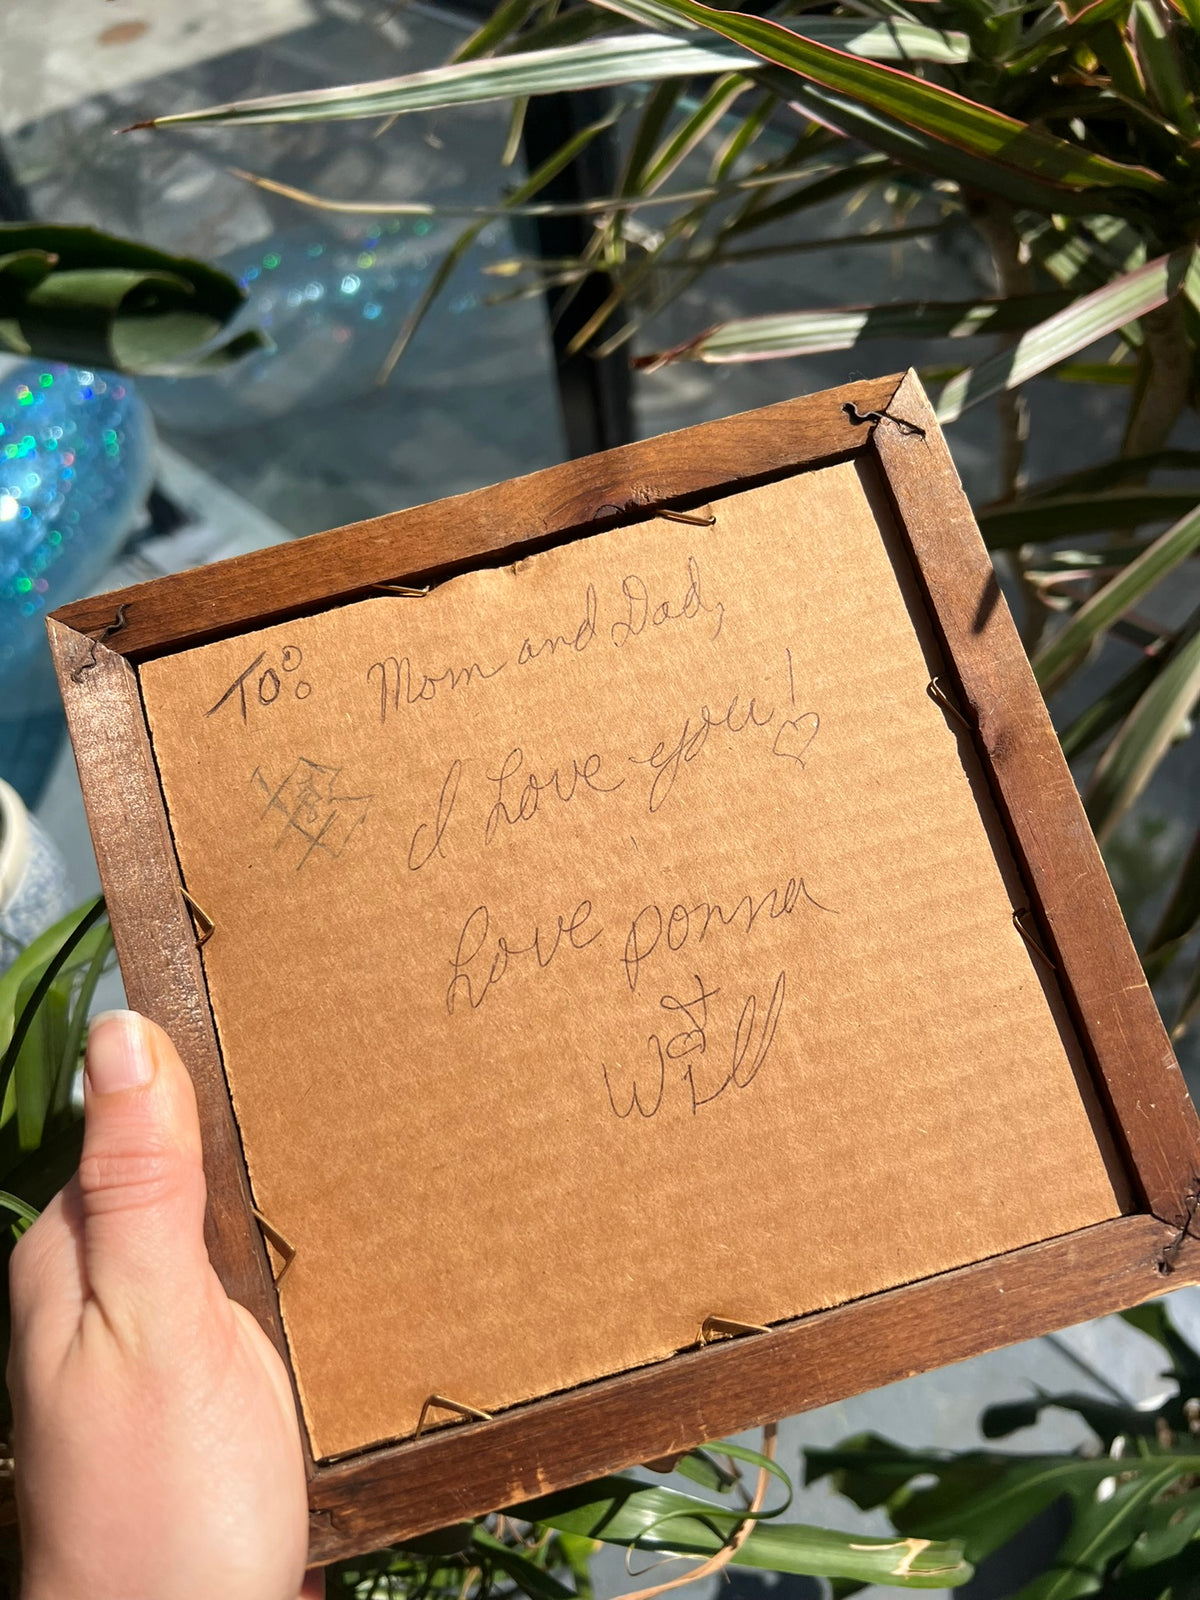 TO: Mom and Dad,
I Love you! ♡
Love Donna
&
Will